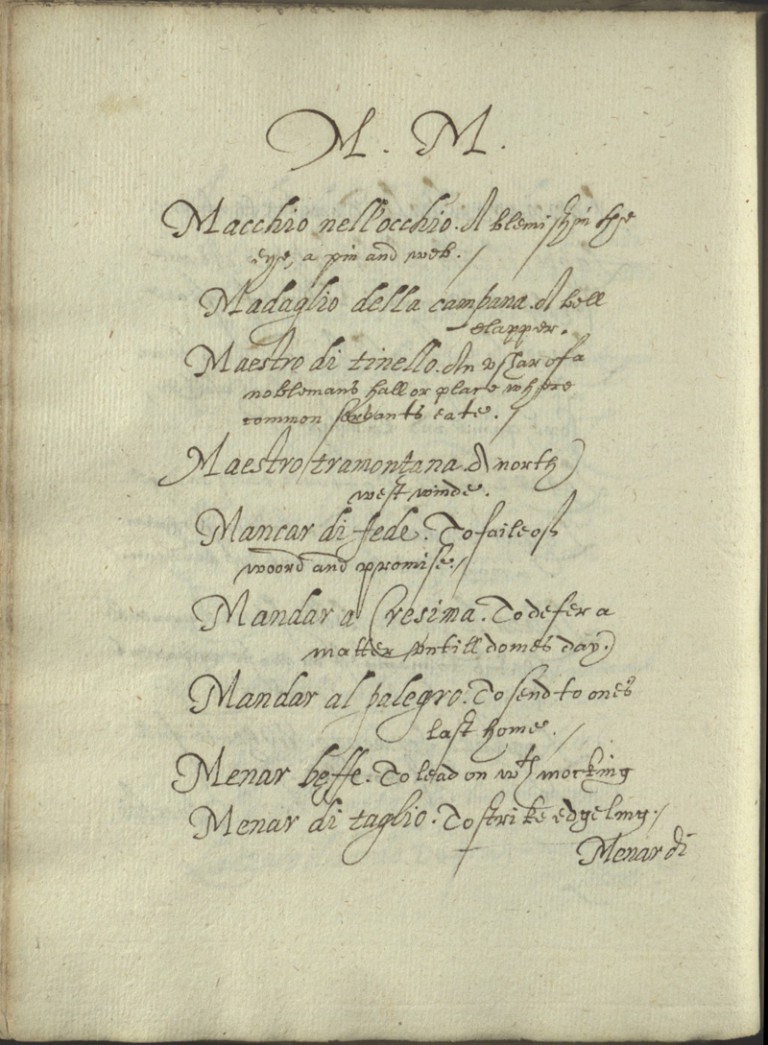 M. M.
Macchio nell'occhio. A blemish in the
eye, a pin and web.
Madaglio della campana. A bell
clapper.
Maestro di tinello. An vshar of a
noblemans hall or place where
common servants eate.
Maestro tramontana. A north
west winde.
Mancar di fede. To faile of
woord and promise.
Mandar a Cresima. To defer a
matter vntill domes day.
Mandar al palegro. To send to ones
last home.
Menar beffe. To lead on wth mocking
Menar di taglio. To strike edgeling.
Menar di